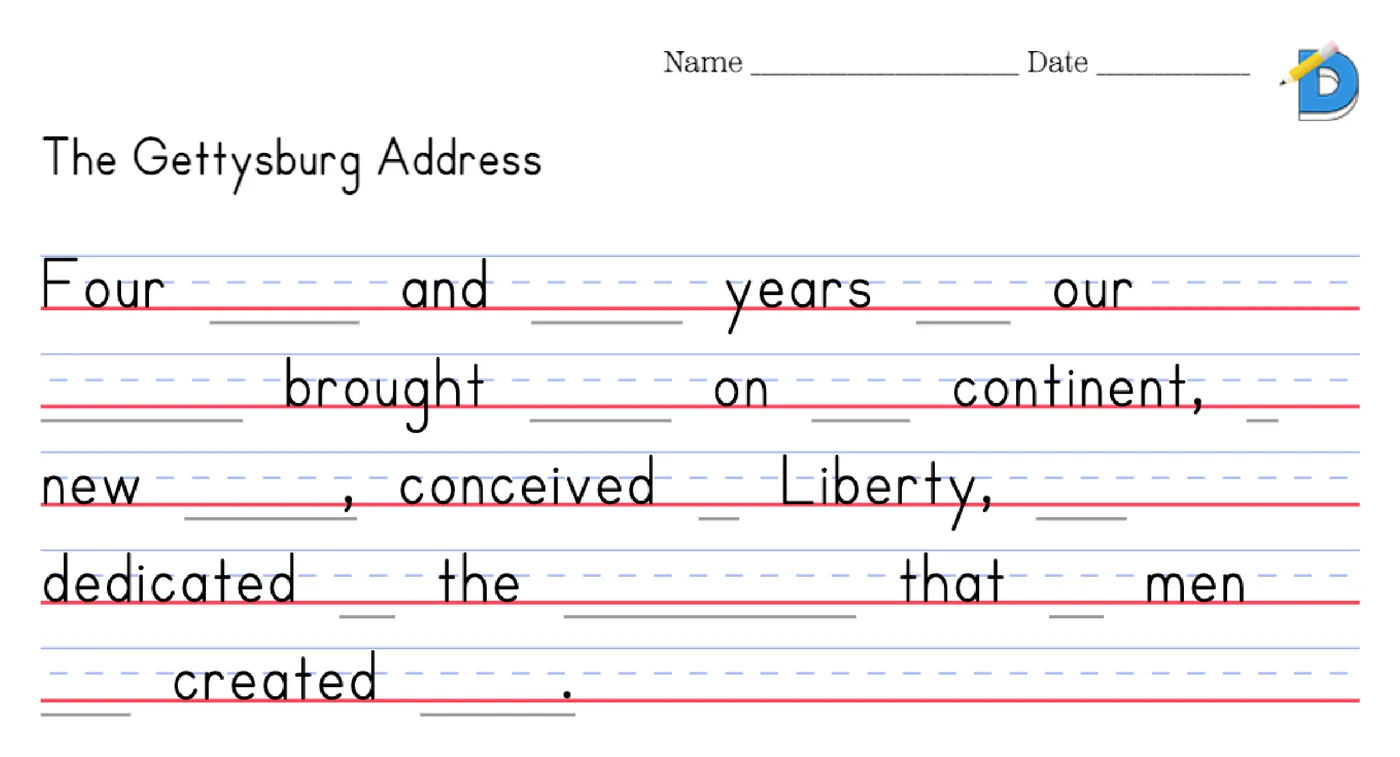 Name ____________ Date ____________
The Gettysburg Address
Four ______ and ______ years ____ our
________ brought ______ on ____ continent, _
new ______, conceived __ Liberty, ____
dedicated __ the ____________ that __ men
____ created ______.